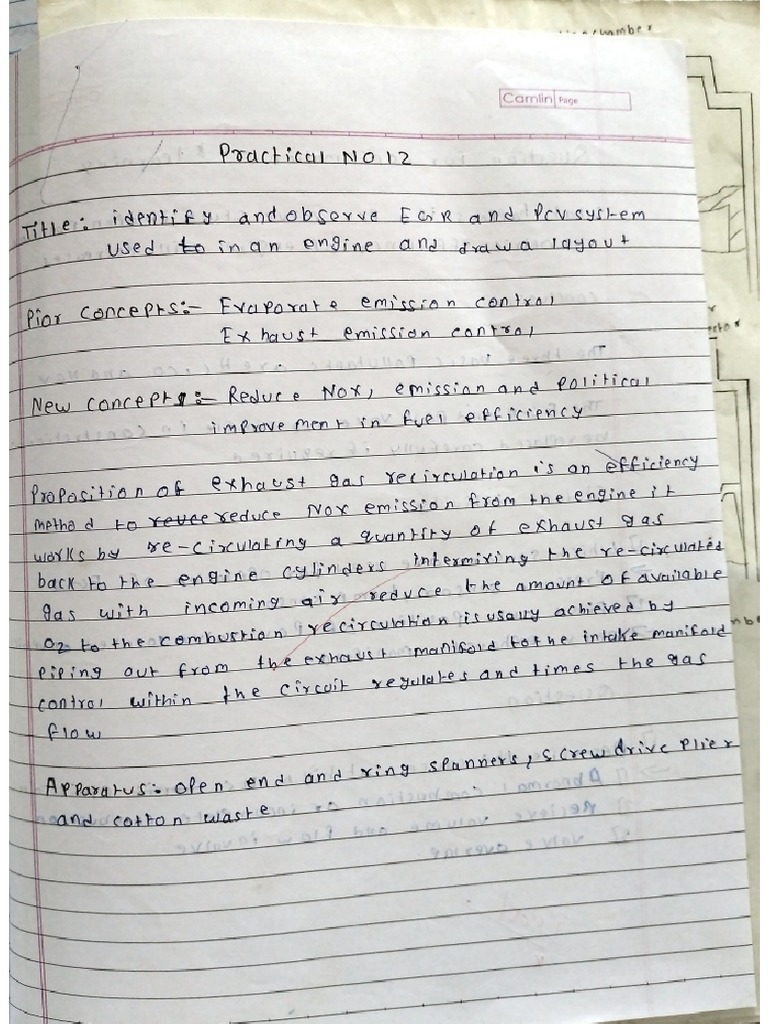 Camlin Page
Practical No 12
Title:- identify and observe EGR and PCV system
used to in an engine and draw a layout
Pior concepts:- Evaporate emission control
Exhaust emission control
New concepts:- Reduce NOx, emission and political
improvement in fuel efficiency
Proposition of exhaust gas recirculation is an efficiency
method to revce reduce Nox emission from the engine it
works by re-circulating a quantity of exhaust gas
back to the engine cylinders intermixing the re-circulated
gas with incoming air reduce the amount of available
O2 to the combustion recirculation is usally achieved by
piping out from the exhaust manifold to the intake manifold
control within the circuit regulates and times the gas
flow
Apparatus:- open end and ring spanners, screw drive plier
and cotton waste